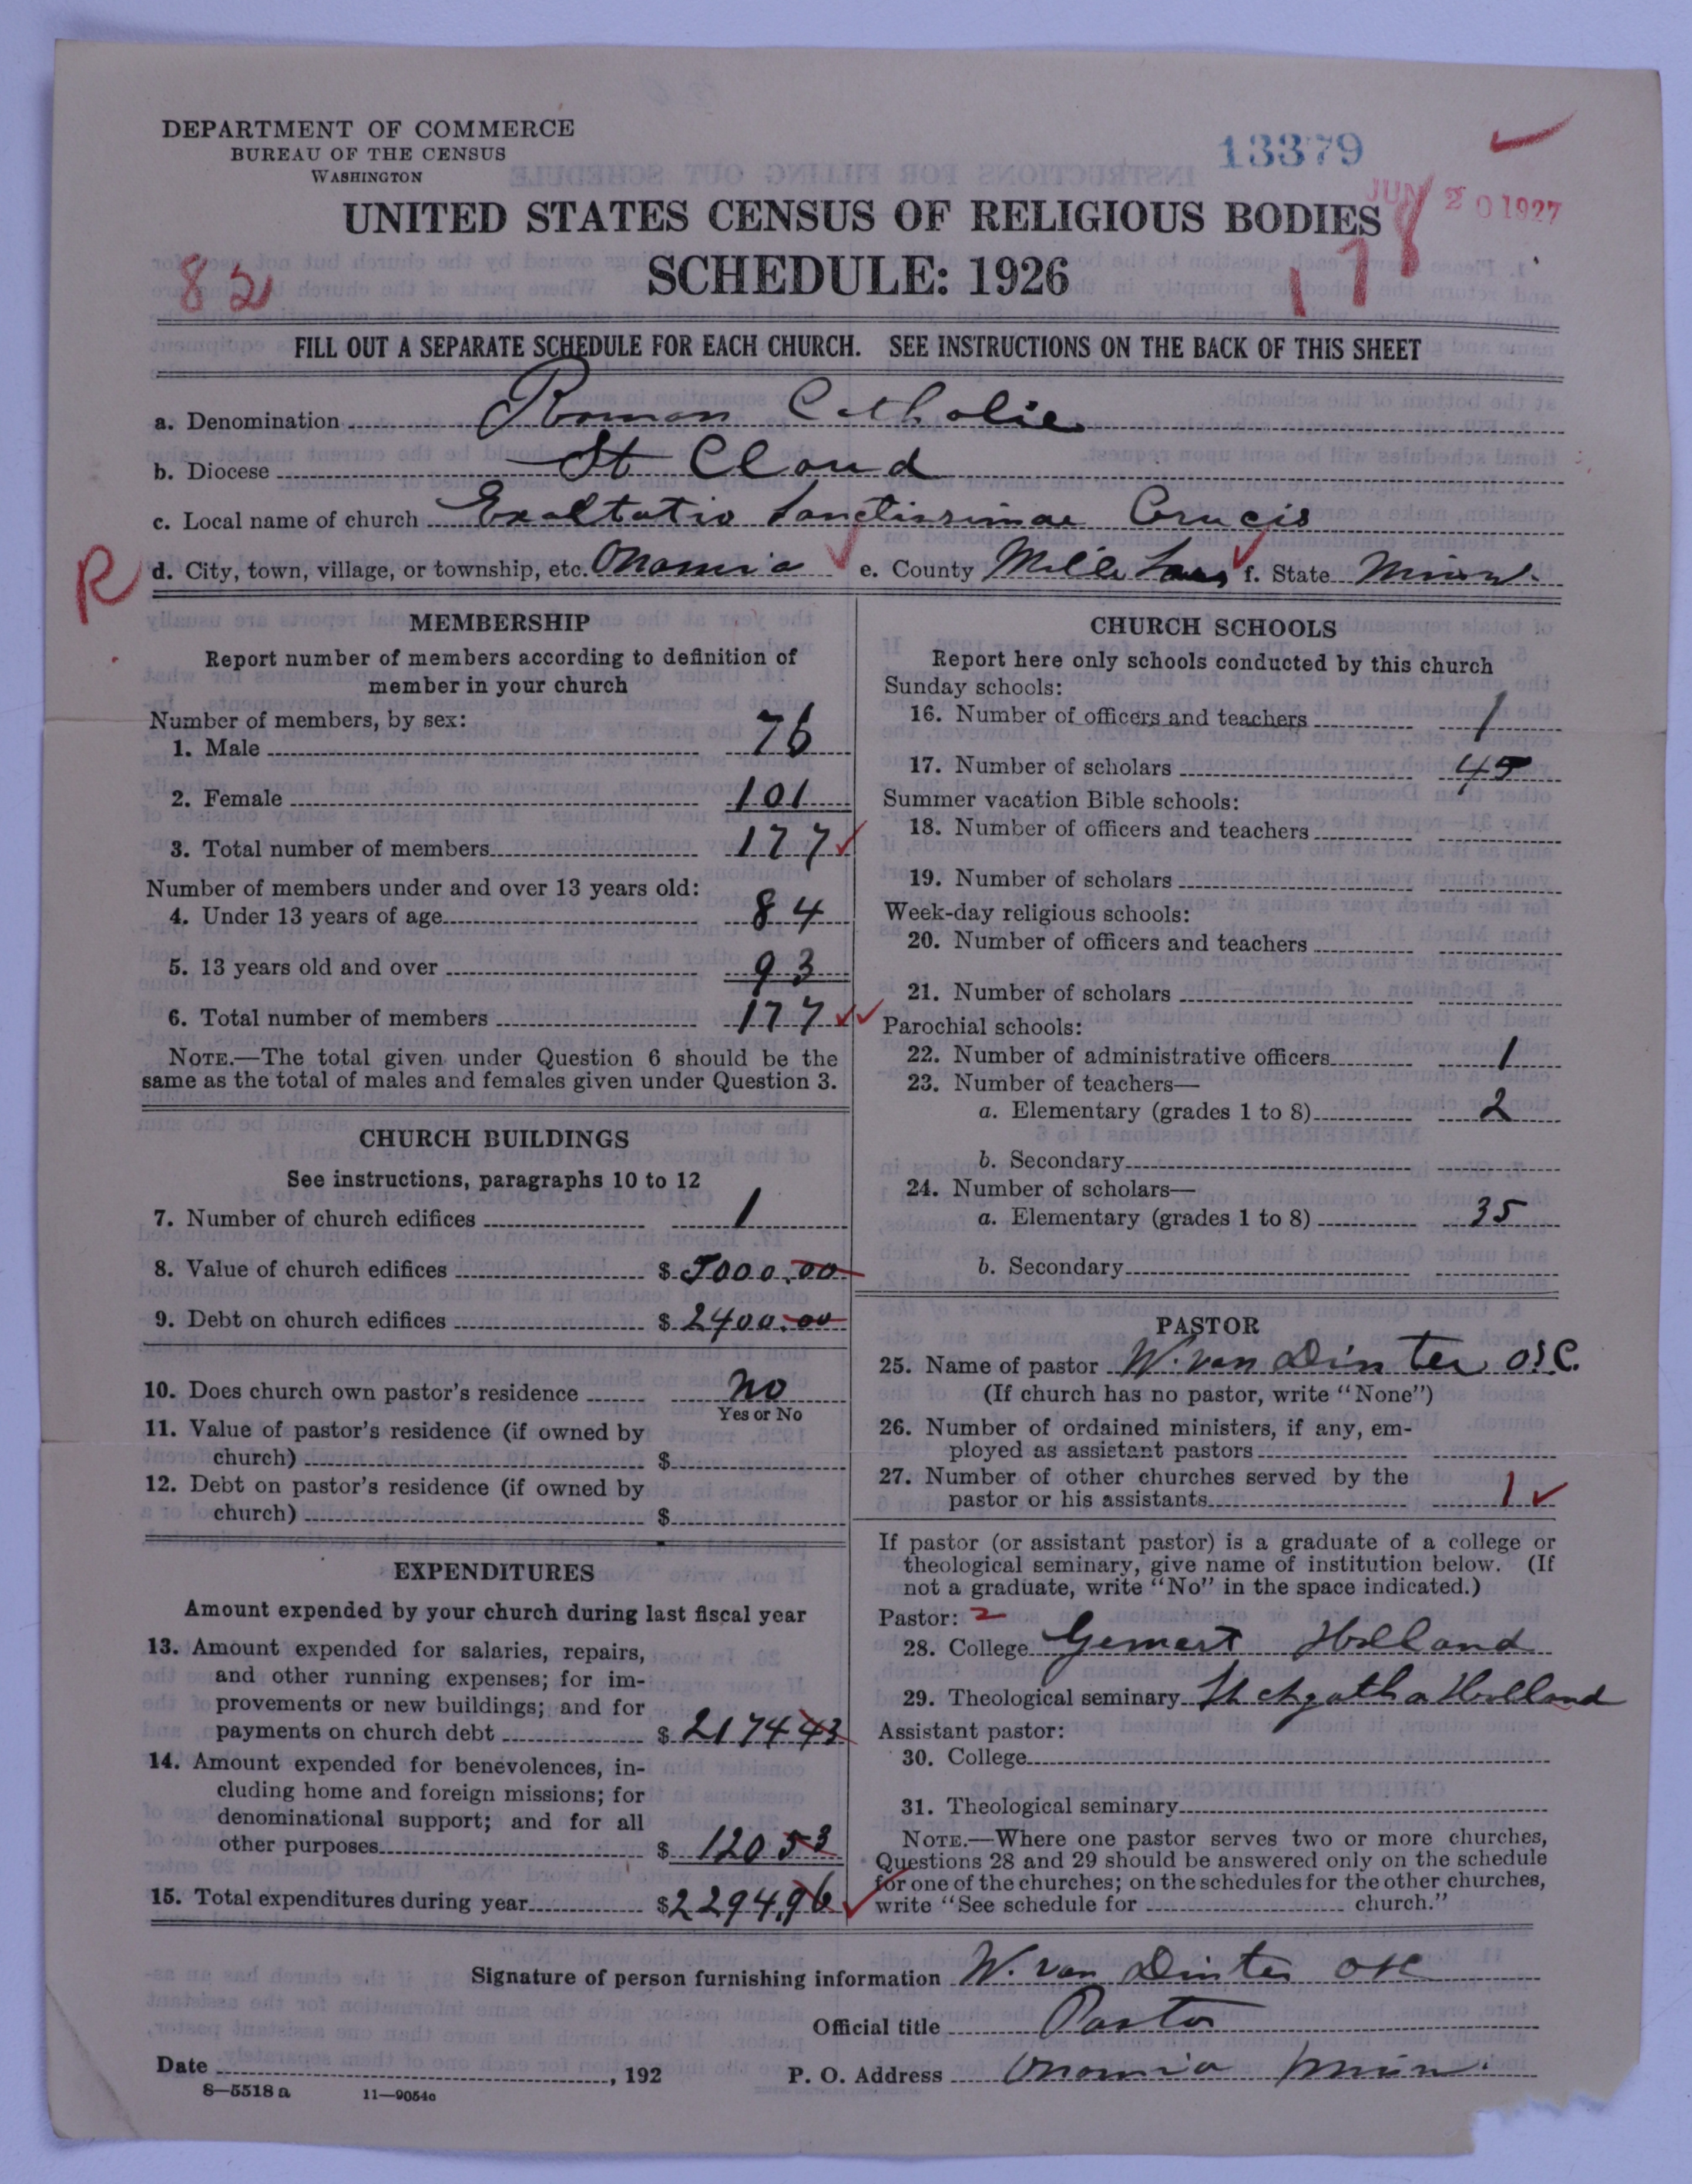 DEPARTMENT OF COMMERCE
BUREAU OF THE CENSUS
WASHINGTON
13379
JUN 20 1927
UNITED STATES CENSUS OF RELIGIOUS BODIES
SCHEDULE: 1926
82
178
FILL OUT A SEPARATE SCHEDULE FOR EACH CHURCH. SEE INSTRUCTIONS ON THE BACK OF THIS SHEET
a. Denomination Roman Catholic
b. Diocese St Cloud
c. Local name of church Exaltatio Sanctissimae Crucis
R
d. City, town, village, or township, etc. Onamia e. County Mille Lacs f. State Minn.
MEMBERSHIP
Report number of members according to definition of
member in your church
Number of members, by sex:
1. Male 76
2. Female 101
3. Total number of members 177
Number of members under and over 13 years old:
4. Under 13 years of age 84
5. 13 years old and over 93
6. Total number of members 177
NOTE.—The total given under Question 6 should be the
same as the total of males and females given under Question 3.
CHURCH BUILDINGS
See instructions, paragraphs 10 to 12
7. Number of church edifices 1
8. Value of church edifices $ 5000.00
9. Debt on church edifices $ 2400.00
10. Does church own pastor's residence no
Yes or No
11. Value of pastor's residence (if owned by
church) $
12. Debt on pastor's residence (if owned by
church) $
EXPENDITURES
Amount expended by your church during last fiscal year
13. Amount expended for salaries, repairs,
and other running expenses; for im-
provements or new buildings; and for
payments on church debt $ 2174 43
14. Amount expended for benevolences, in-
cluding home and foreign missions; for
denominational support; and for all
other purposes $ 120 53
15. Total expenditures during year $ 2294.96
CHURCH SCHOOLS
Report here only schools conducted by this church
Sunday schools:
16. Number of officers and teachers 1
17. Number of scholars 45
Summer vacation Bible schools:
18. Number of officers and teachers
19. Number of scholars
Week-day religious schools:
20. Number of officers and teachers
21. Number of scholars
Parochial schools:
22. Number of administrative officers 1
23. Number of teachers—
a. Elementary (grades 1 to 8) 2
b. Secondary
24. Number of scholars—
a. Elementary (grades 1 to 8) 35
b. Secondary
PASTOR
25. Name of pastor W. van Dinter O.S.C.
(If church has no pastor, write "None")
26. Number of ordained ministers, if any, em-
ployed as assistant pastors
27. Number of other churches served by the
pastor or his assistants 1
If pastor (or assistant pastor) is a graduate of a college or
theological seminary, give name of institution below. (If
not a graduate, write "No" in the space indicated.)
Pastor: 2
28. College Gemert Holland
29. Theological seminary St Agatha Holland
Assistant pastor:
30. College
31. Theological seminary
NOTE.—Where one pastor serves two or more churches,
Questions 28 and 29 should be answered only on the schedule
for one of the churches; on the schedules for the other churches,
write "See schedule for church."
Signature of person furnishing information W. van Dinter OSC
Official title Pastor
Date , 192 P. O. Address Onamia Minn.
8—5518 a 11—9054c